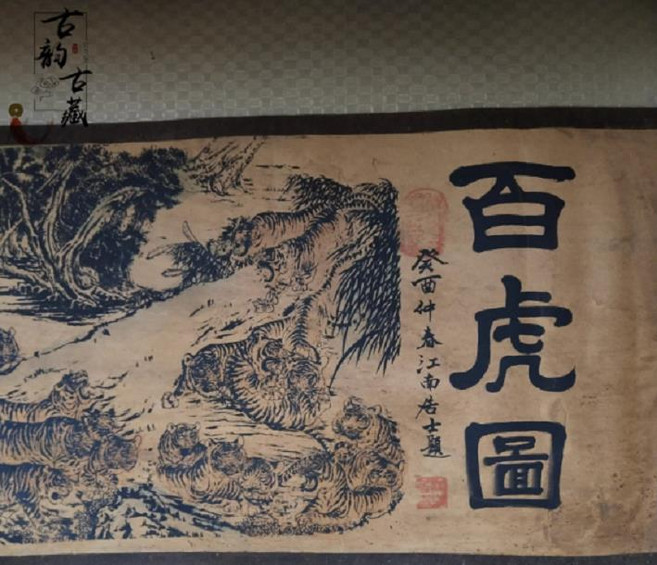 百虎圖
癸酉仲春江南居士題
古韵
古藏